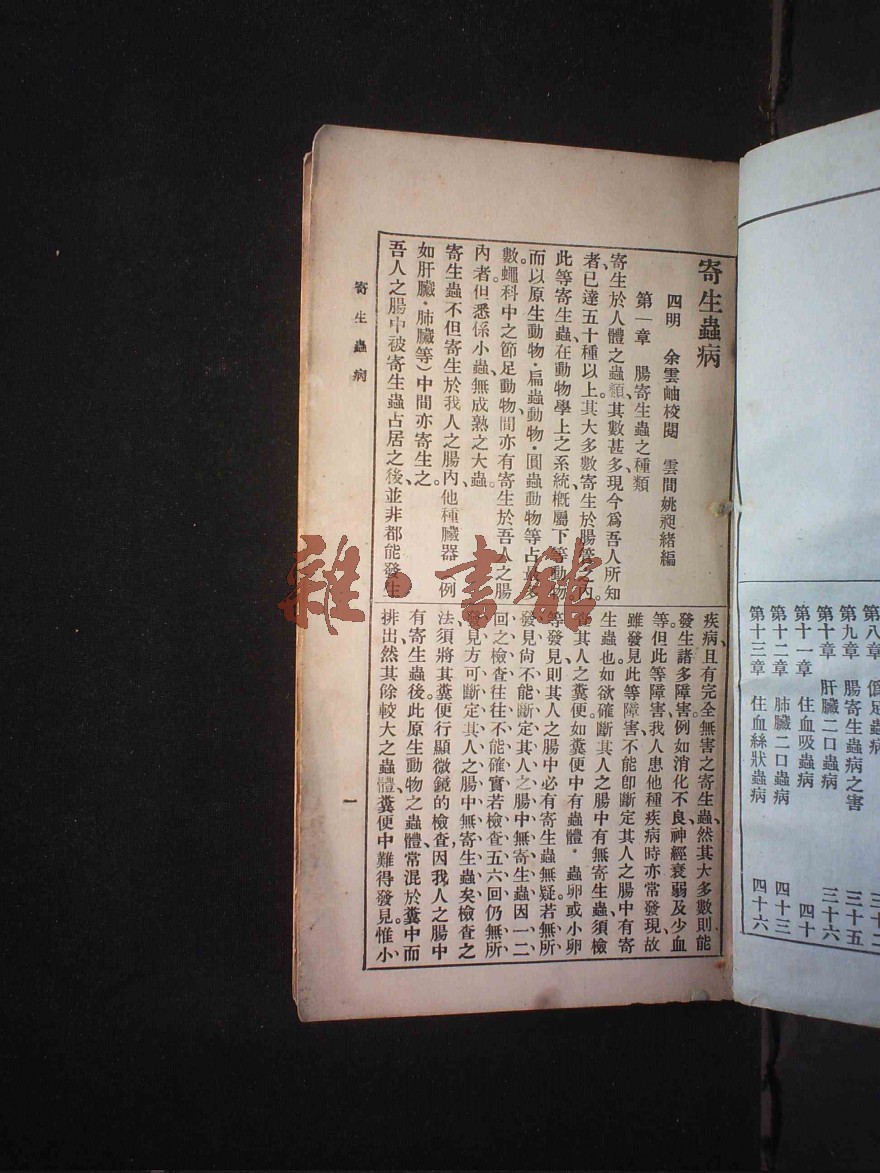 第八章
第九章 腸寄生蟲病之害 三十五
第十章 肝臟二口蟲病 三十六
第十一章 住血吸蟲病 四十
第十二章 肺臟二口蟲病 四十三
第十三章 住血絲狀蟲病 四十六
寄生蟲病
四明 余雲岫校閱 雲間姚昶緒編
第一章 腸寄生蟲之種類
寄生於人體之蟲類、其數甚多、現今爲吾人所知
者、已達五十種以上。其大多數寄生於腸管之內。
此等寄生蟲、在動物學上之系統、概屬下等動物、
而以原生動物・扁蟲動物・圓蟲動物等占最多
數。蠅科中之節足動物、間亦有寄生於吾人之腸
內者。但悉係小蟲、無成熟之大蟲。
寄生蟲不但寄生於我人之腸內、他種臟器(例
如肝臟・肺臟等)中間亦寄生之。
吾人之腸中被寄生蟲占居之後、並非都能發生
疾病、且有完全無害之寄生蟲、然其大多數則能
發生諸多障害。例如消化不良、神經衰弱及少血
等。但此等障害、我人患他種疾病時亦常發現、故
雖發見此等障害、不能卽斷定其人之腸中有寄
生蟲也。如欲確斷其人之腸中有無寄生蟲、須檢
查其人之糞便。如糞便中有蟲體・蟲卵或小卵
等發見、則其人之腸中必有寄生蟲無疑。若無所
發見、尙不能斷定其人之腸中無寄生蟲、因一二
回之檢查、往往不能確實、若檢查五六回仍無所
發見、方可斷定其人之腸中無寄生蟲矣。檢查之
法、須將其糞便行顯微鏡的檢查、因我人之腸中
有寄生蟲後、此原生動物之蟲體、常混於糞中而
排出、然其餘較大之蟲體、糞便中難得發見。惟小
寄生蟲病
一
雜・書館